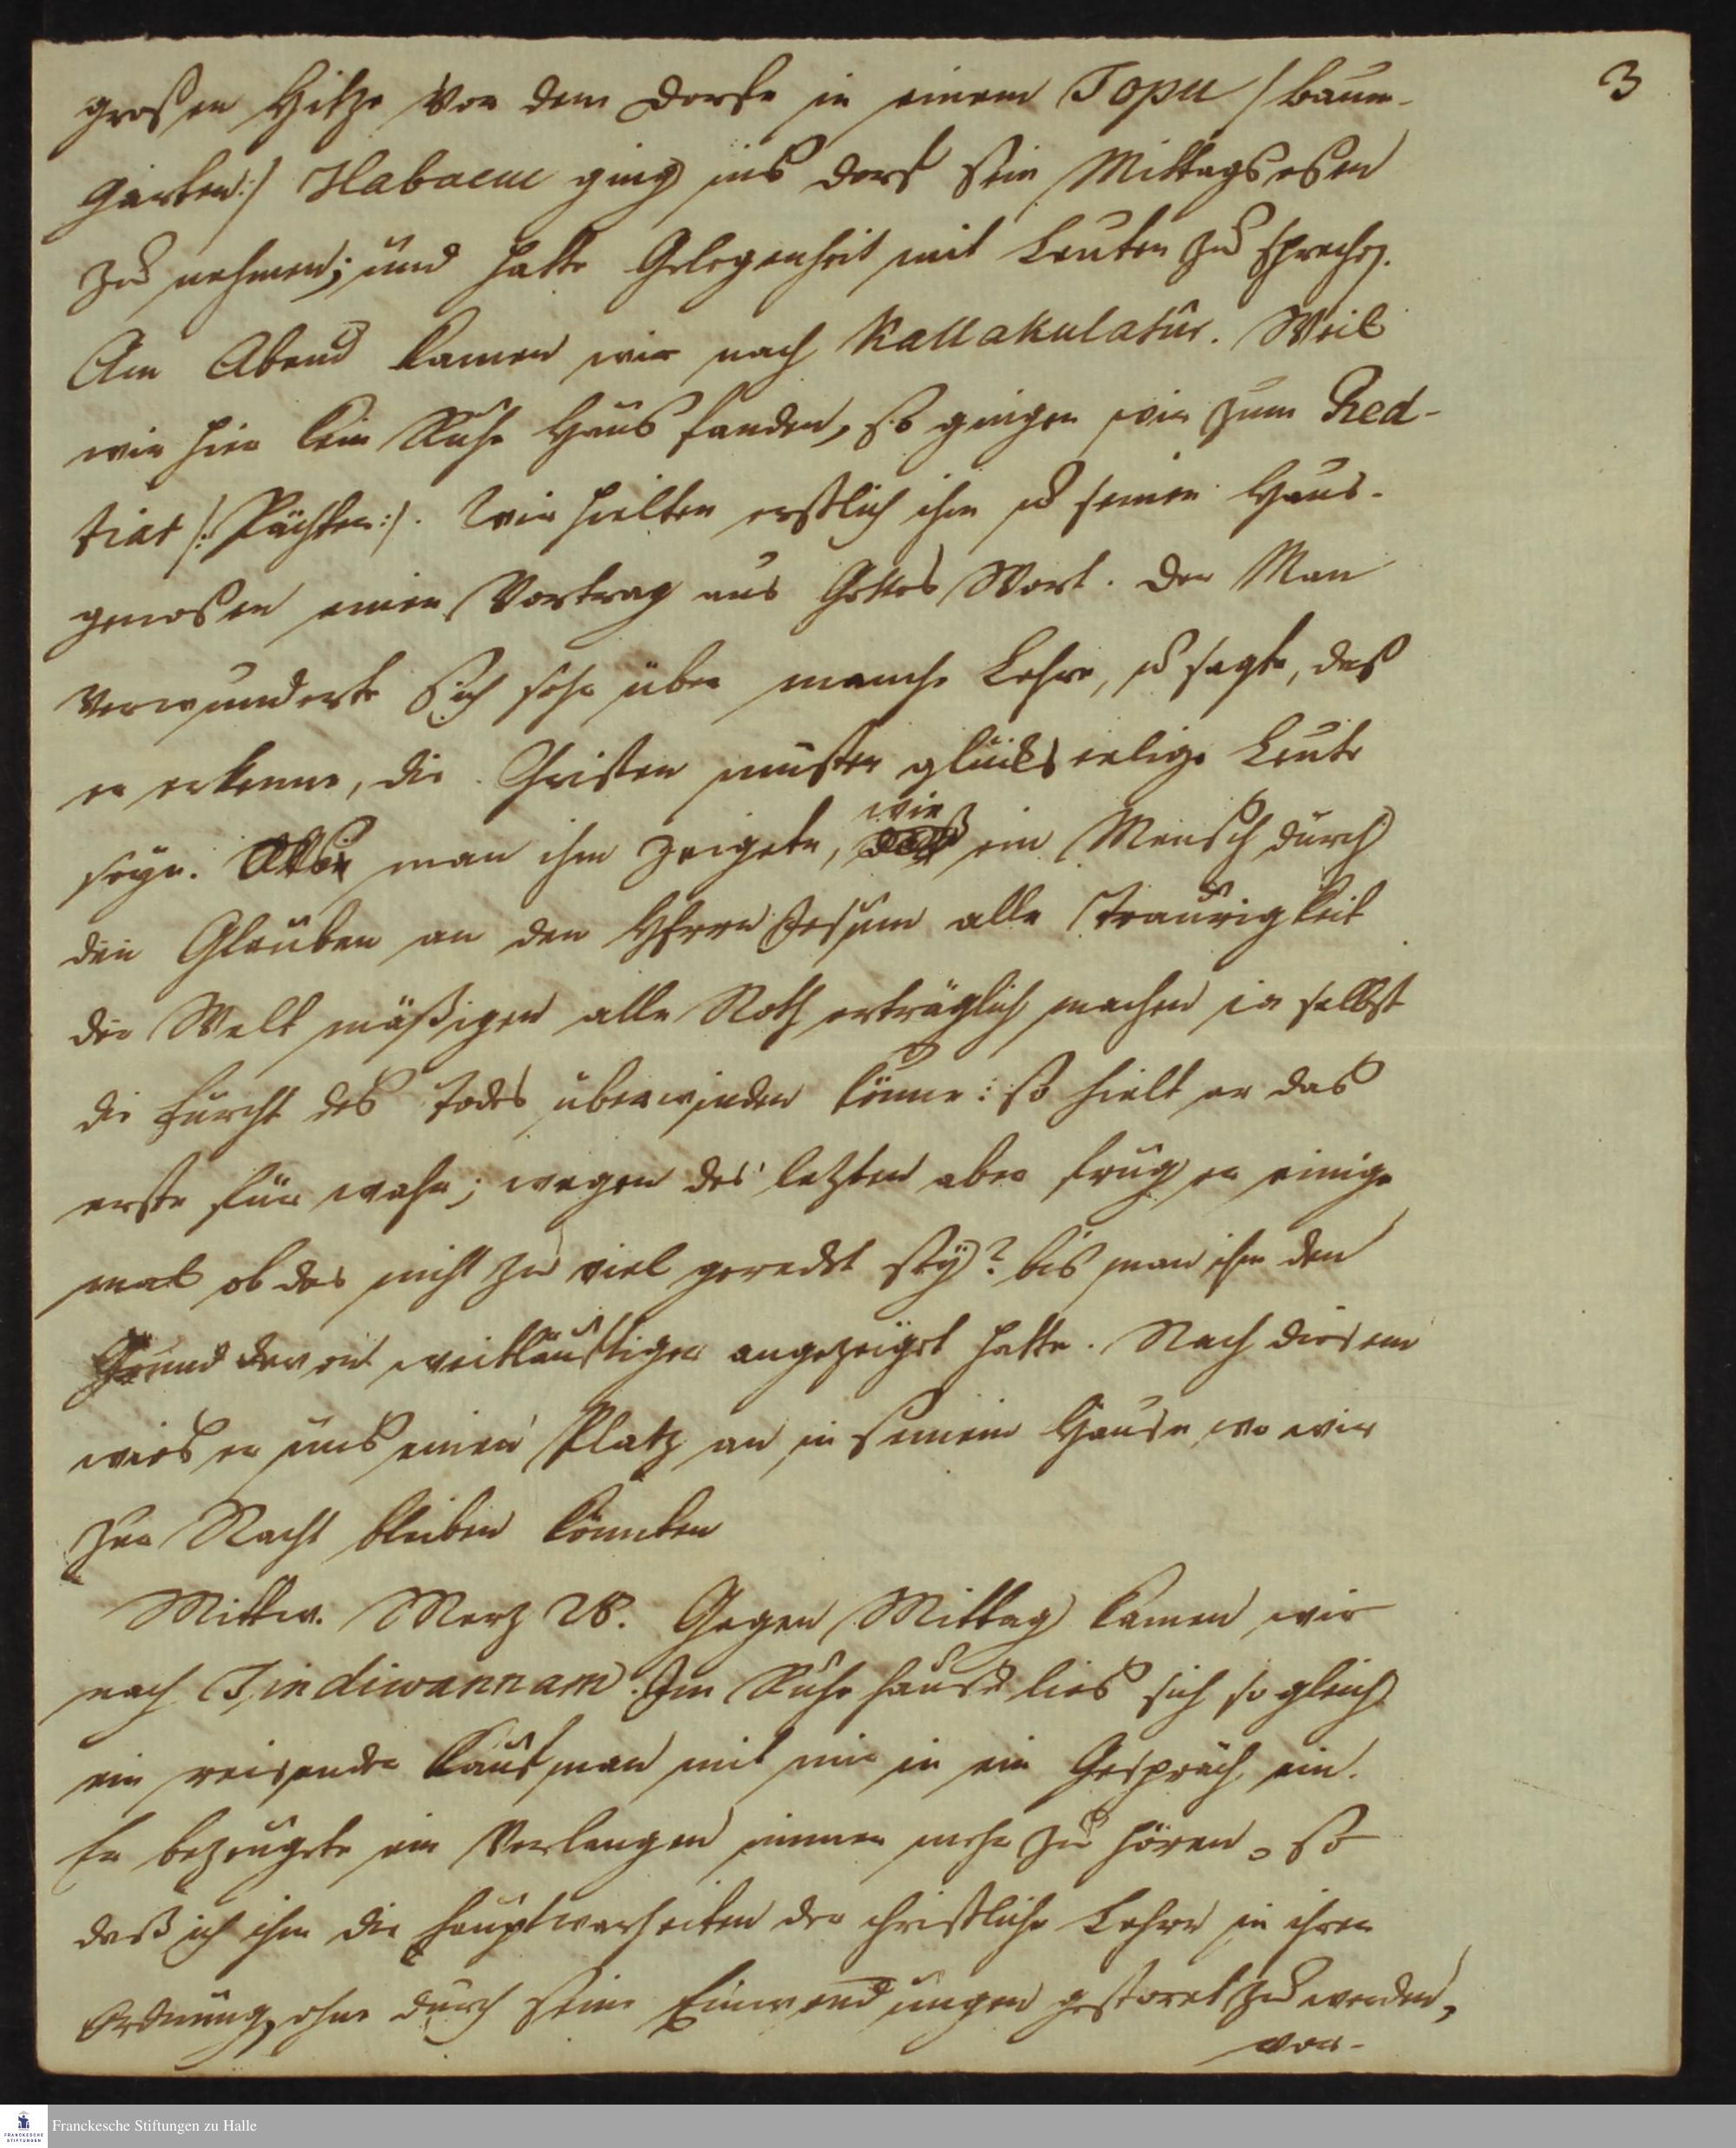 3
großen Hitze vor dem Dorfe in einem Topu /:baum-
garten:/ Habacuc ging ins Dorf sein Mittagseßen
zu nehmen; und hatte Gelegenheit mit Leuten zu sprechen.
Am Abend kamen wir nach Kallakulatur. Weil
wir hier kein Ruhe Haus fanden, so gingen wir zum Red-
tiar /:Pächter:/. Wir hielten erstlich ihm u seinen Haus-
genoßen einen Vortrag aus Gottes Wort. Der Man
verwunderte sich sehr über manche Lehre, u sagte, daß
er erkenne, die Christen müsten glückseelige Leute
seyn. Als man ihm zeigete, wie ein Mensch durch
den Glauben an den HErrn Jesum alle Traurigkeit
der Welt mäßigen alle Noth erträglich machen ja selbst
die Furcht des Todes überwinden könne: so hielt er das
erste für wahr; wegen des letzten aber frug er einige
mal ob das nicht zu viel geredet sey? bis man ihm den
Grund davon weitläuftiger angezeiget hatte. Nach diesem
wies er uns einen Platz an in seinem Hause wo wir
zur Nacht bleiben könnten
Mittw. Merz 28. Gegen Mittag kamen wir
nach Tindiwannam. Im Ruhe hause lies sich so gleich
ein reisender Kaufman mit mir in ein Gespräch ein.
Er bezeugete ein Verlangen immer mehr zu hören, so
daß ich ihm die Hauptwarheiten der christliche Lehre in ihrer
Ordnung, ohne durch seine Einwendungen gestöret zu werden,
vor-
Franckesche Stiftungen zu Halle
FRANCKESCHE
STIFTUNGEN